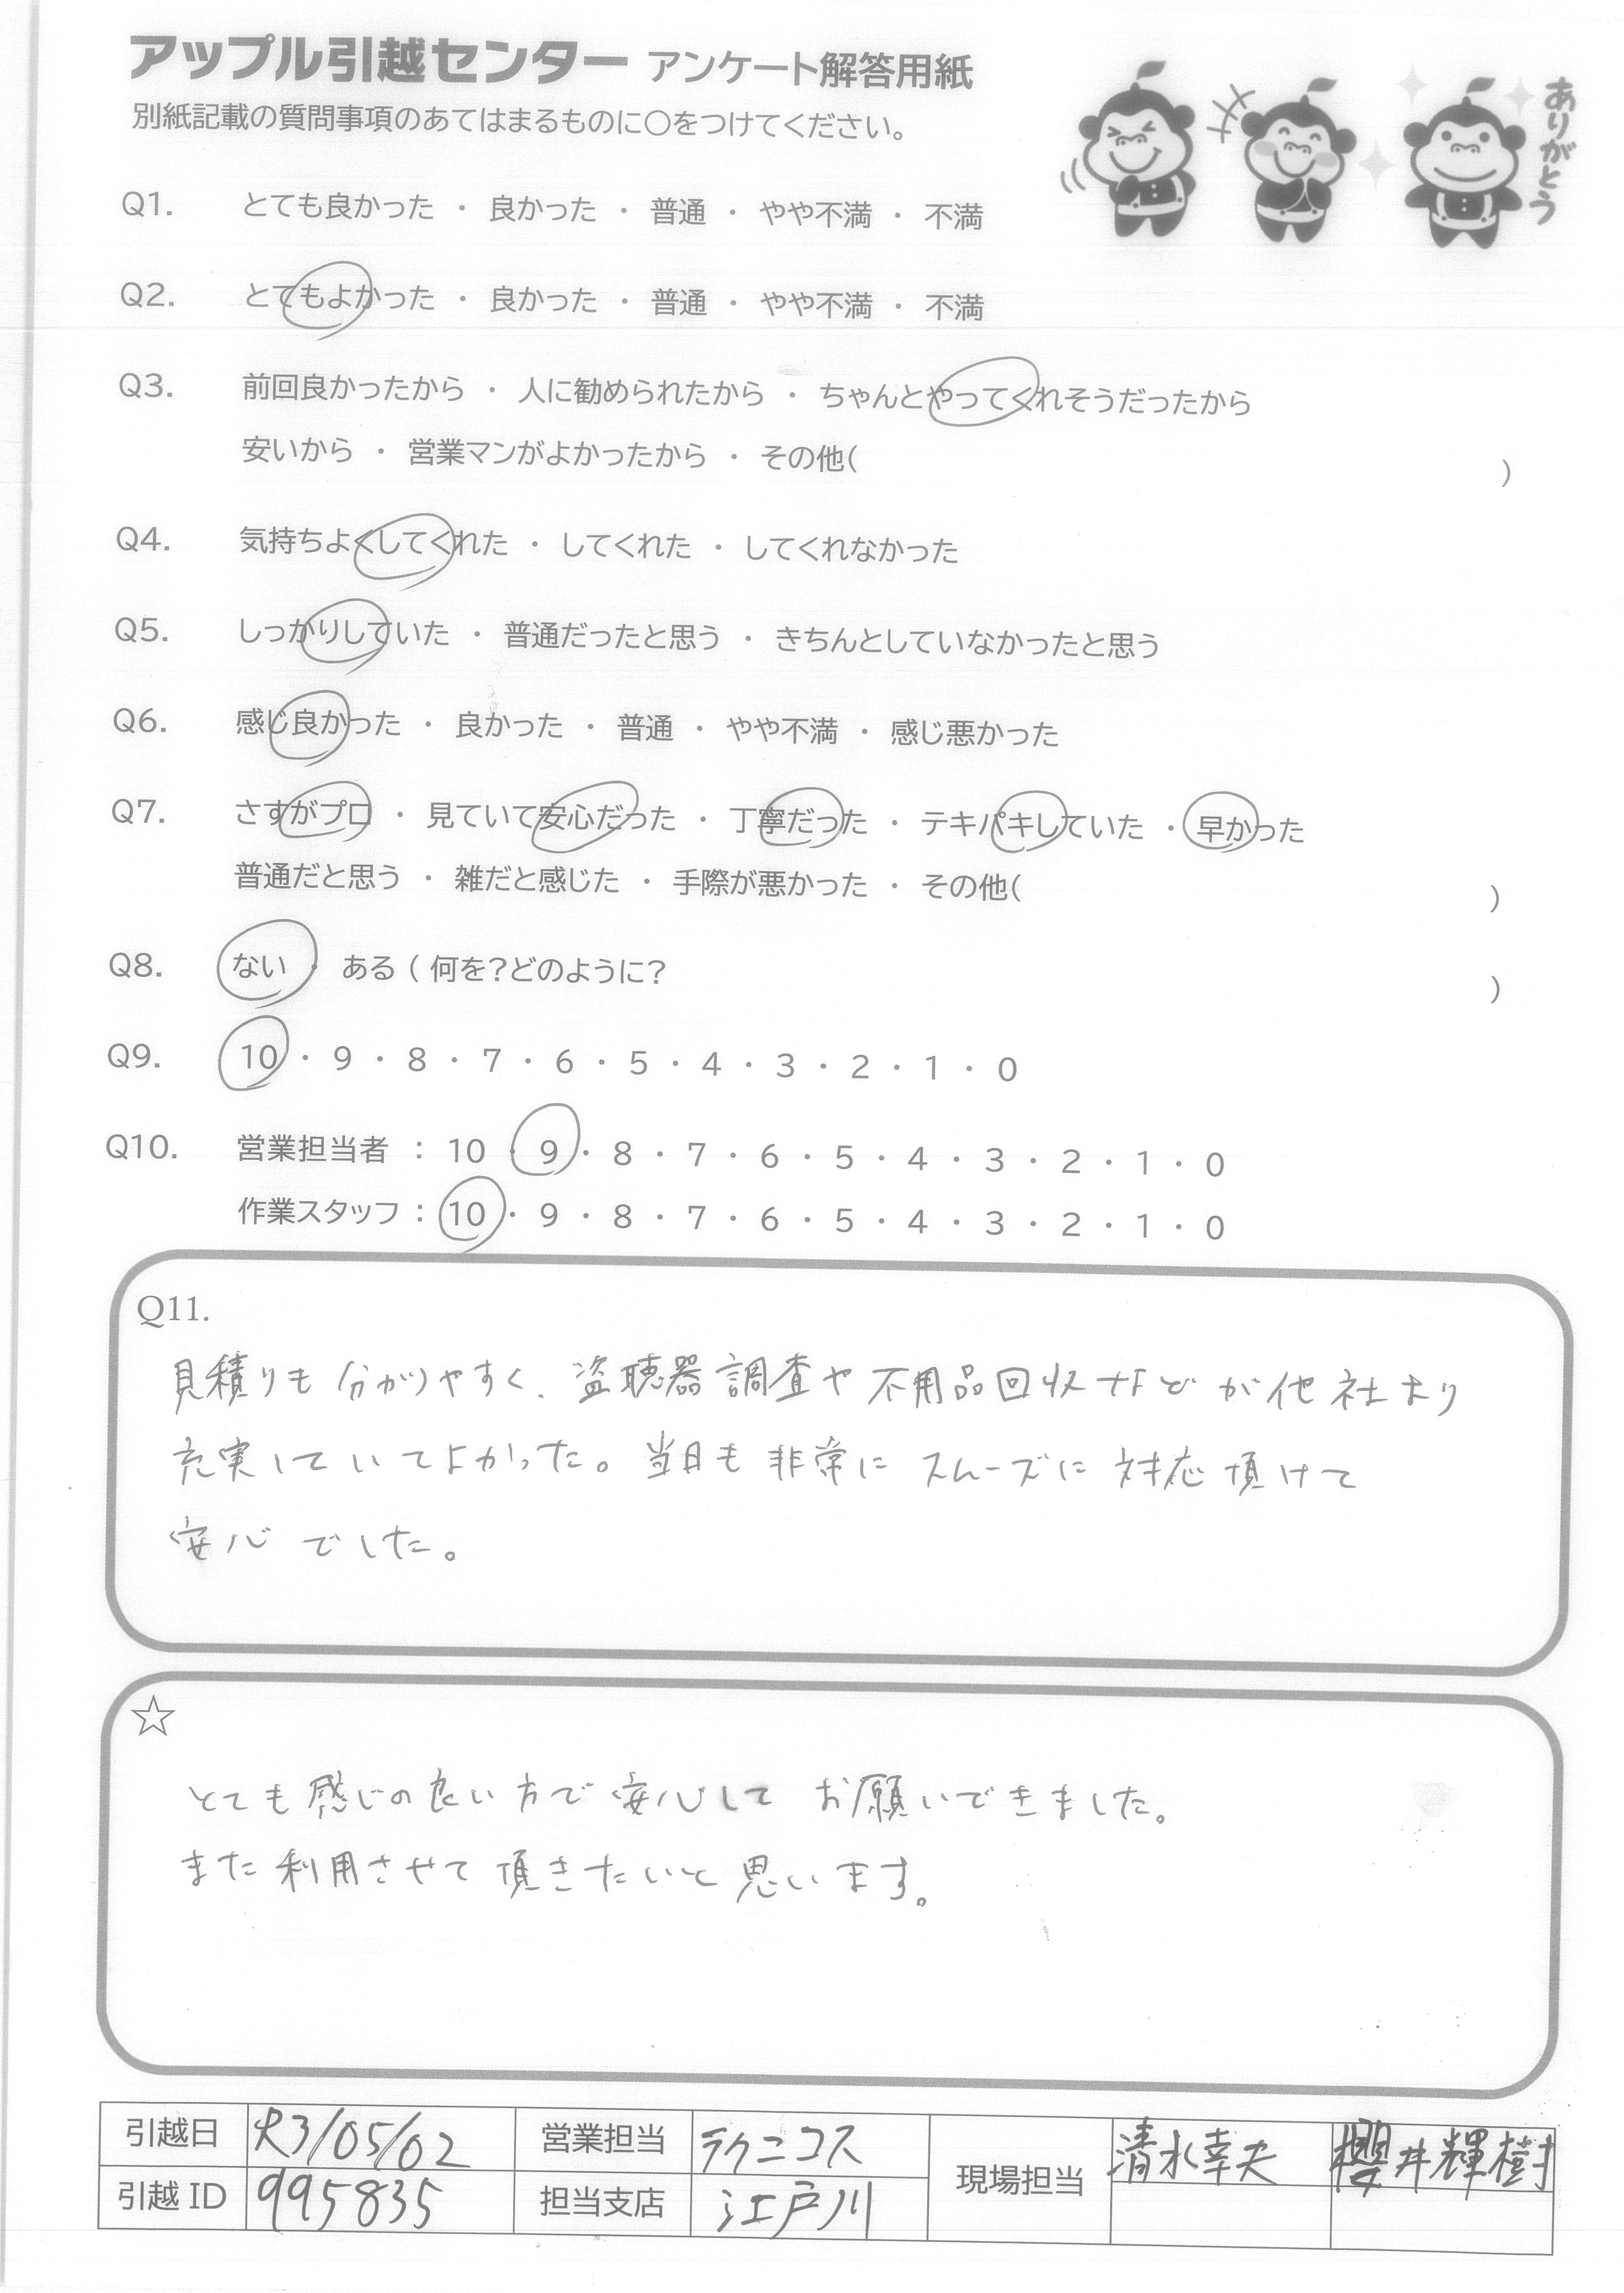 アップル引越センター アンケート解答用紙
別紙記載の質問事項のあてはまるものに○をつけてください。
ありがとう
Q1. とても良かった ・ 良かった ・ 普通 ・ やや不満 ・ 不満
Q2. とてもよかった ・ 良かった ・ 普通 ・ やや不満 ・ 不満
Q3. 前回良かったから ・ 人に勧められたから ・ ちゃんとやってくれそうだったから
安いから ・ 営業マンがよかったから ・ その他( )
Q4. 気持ちよくしてくれた ・ してくれた ・ してくれなかった
Q5. しっかりしていた ・ 普通だったと思う ・ きちんとしていなかったと思う
Q6. 感じ良かった ・ 良かった ・ 普通 ・ やや不満 ・ 感じ悪かった
Q7. さすがプロ ・ 見ていて安心だった ・ 丁寧だった ・ テキパキしていた ・ 早かった
普通だと思う ・ 雑だと感じた ・ 手際が悪かった ・ その他( )
Q8. ない ・ ある ( 何を?どのように? )
Q9. 10 ・ 9 ・ 8 ・ 7 ・ 6 ・ 5 ・ 4 ・ 3 ・ 2 ・ 1 ・ 0
Q10. 営業担当者 : 10 ・ 9 ・ 8 ・ 7 ・ 6 ・ 5 ・ 4 ・ 3 ・ 2 ・ 1 ・ 0
作業スタッフ : 10 ・ 9 ・ 8 ・ 7 ・ 6 ・ 5 ・ 4 ・ 3 ・ 2 ・ 1 ・ 0
Q11.
見積りも分かりやすく、盗聴器調査や不用品回収などが他社より
充実していてよかった。当日も非常にスムーズに対応頂けて
安心でした。
☆
とても感じの良い方で安心してお願いできました。
また利用させて頂きたいと思います。
引越日 R3/05/02 営業担当 テクニコス 現場担当 清水幸夫 櫻井輝樹
引越ID 995835 担当支店 江戸川